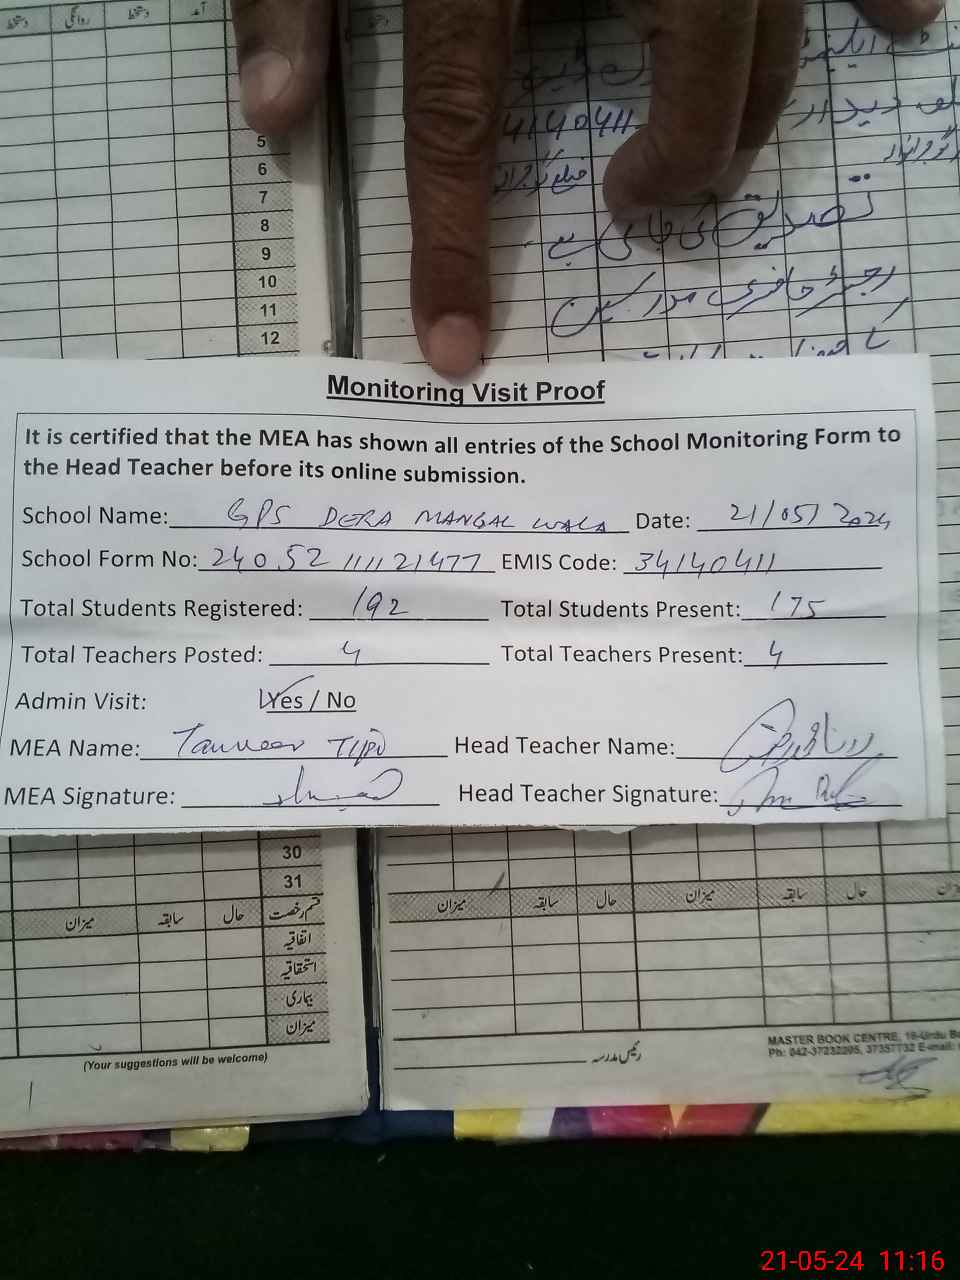 دستخط روانگی دستخط آمد
دستخط
5
6
7
8
9
10
11
12
34140411
تصدیق کی جاتی ہے
رجسٹر حاضری مدرسین
Monitoring Visit Proof
It is certified that the MEA has shown all entries of the School Monitoring Form to
the Head Teacher before its online submission.
School Name: GPS DERA MANGAL WALA Date: 21/05/2024
School Form No: 240.52 111121477 EMIS Code: 34140411
Total Students Registered: 192 Total Students Present: 175
Total Teachers Posted: 4 Total Teachers Present: 4
Admin Visit: Yes / No
MEA Name: Tanveer Tipu Head Teacher Name:
MEA Signature: Head Teacher Signature:
30
31
میزان سابقہ حال قسم رخصت
اتفاقیہ
استحقاقیہ
بیماری
میزان
میزان سابقہ حال میزان سابقہ حال
(Your suggestions will be welcome)
رئیس مدرسہ
MASTER BOOK CENTRE, 19-Urdu
Ph: 042-37232205, 37357732 E-mail:
21-05-24 11:16